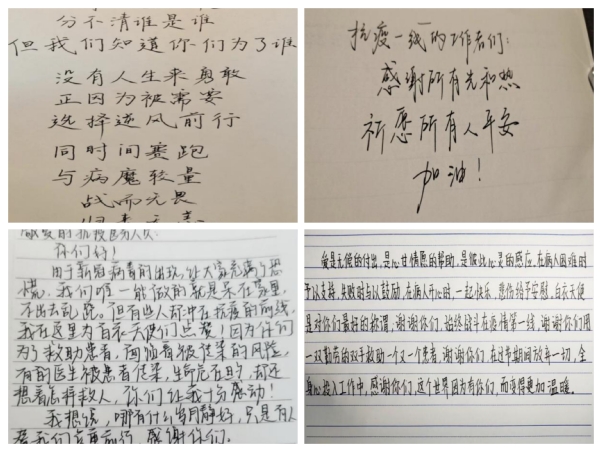 分不清谁是谁
但我们知道你们为了谁
没有人生来勇敢
正因为被需要
选择逆风前行
同时间赛跑
与病魔较量
战而无畏
抗疫一线的工作者们:
感谢所有光和热
祈愿所有人平安
加油!
敬爱的抗疫医务人员:
你们好!
由于新冠病毒的出现,让大家充满了恐
慌。我们唯一能做的就是呆在家里,
不出去乱跑。但有些人却冲在抗疫的前线,
我在这里为白衣天使们点赞!因为你们
为了救助患者,面临着被传染的风险,
有的医生被患者传染,生死在旦夕,却还
想着怎样救人,你们让我十分感动!
我想说,哪有什么岁月静好,只是有人
替我们负重前行,感谢你们。
爱是无偿的付出,是心甘情愿的帮助,是彼此心灵的感应,在病人困难时
予以支持,失败时与以鼓励,在病人开心时,一起快乐,悲伤给予安慰,白衣天使
是对你们最好的称谓,谢谢你们,始终战斗在疫情第一线,谢谢你们用
一双勤劳的双手救助一个又一个患者,谢谢你们,在过节期间放弃一切,全
身心投入工作中,感谢你们,这个世界因为有你们,而变得更加温暖。